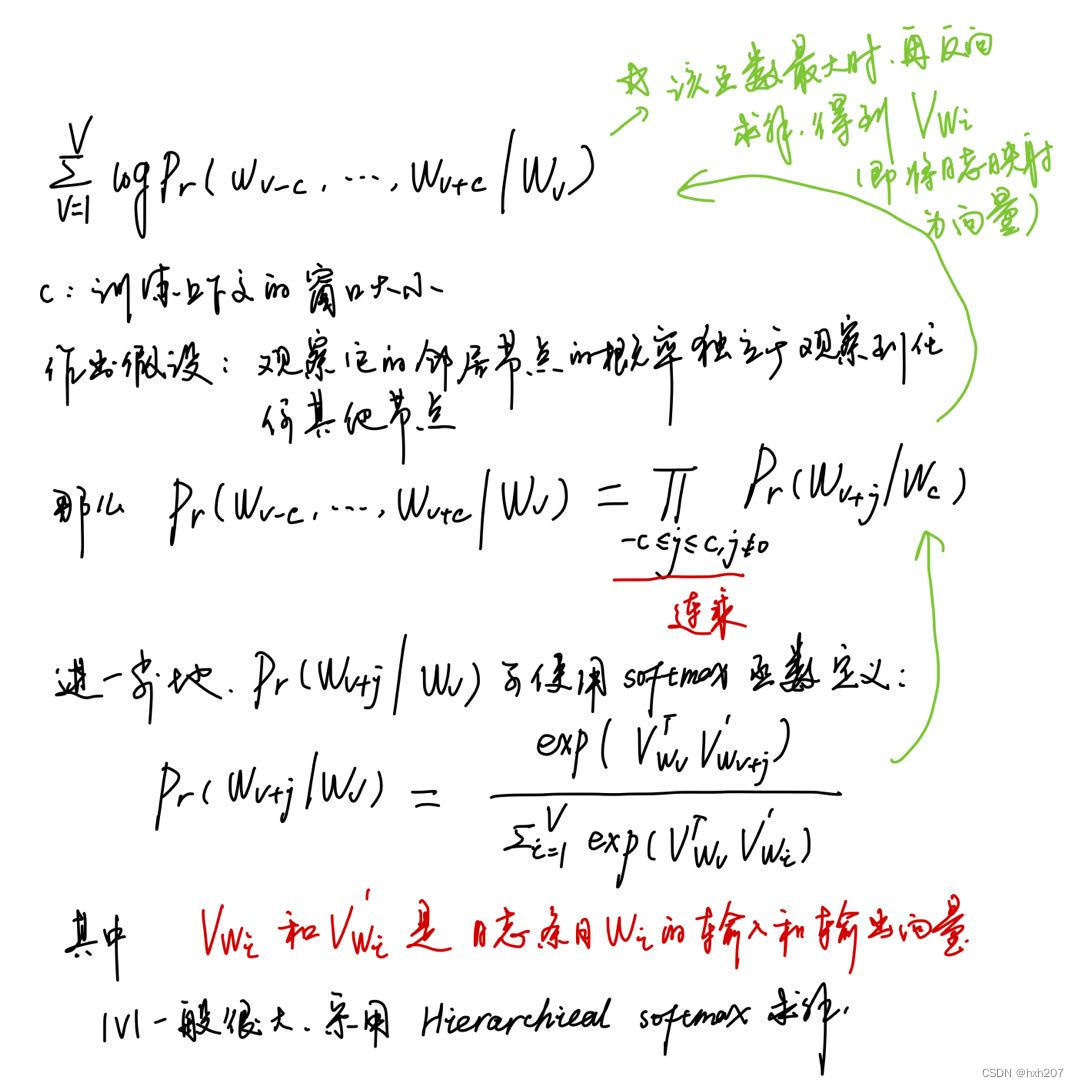 求该函数最大时.再反向
求解.得到 V_{w_i}
(即将日志映射
为向量)
\sum_{v=1}^{V} log Pr(w_{v-c}, ..., w_{v+c} / w_v)
c: 训练上下文的窗口大小
作出假设: 观察它的邻居节点的概率独立于观察到任
何其他节点
那么 Pr(w_{v-c}, ..., w_{v+c} / w_v) = \prod_{-c≤j≤c, j≠0} Pr(w_{v+j} / w_c)
连乘
进一步地. Pr(w_{v+j} / w_v) 可使用 softmax 函数定义:
Pr(w_{v+j} / w_v) = \frac{exp(V_{w_v}^T V'_{w_{v+j}})}{\sum_{i=1}^{V} exp(V_{w_v}^T V'_{w_i})}
其中 V_{w_i} 和 V'_{w_i} 是 日志条目 w_i 的输入和输出向量
|V| 一般很大. 采用 Hierarchical softmax 求解.
CSDN @hxh207